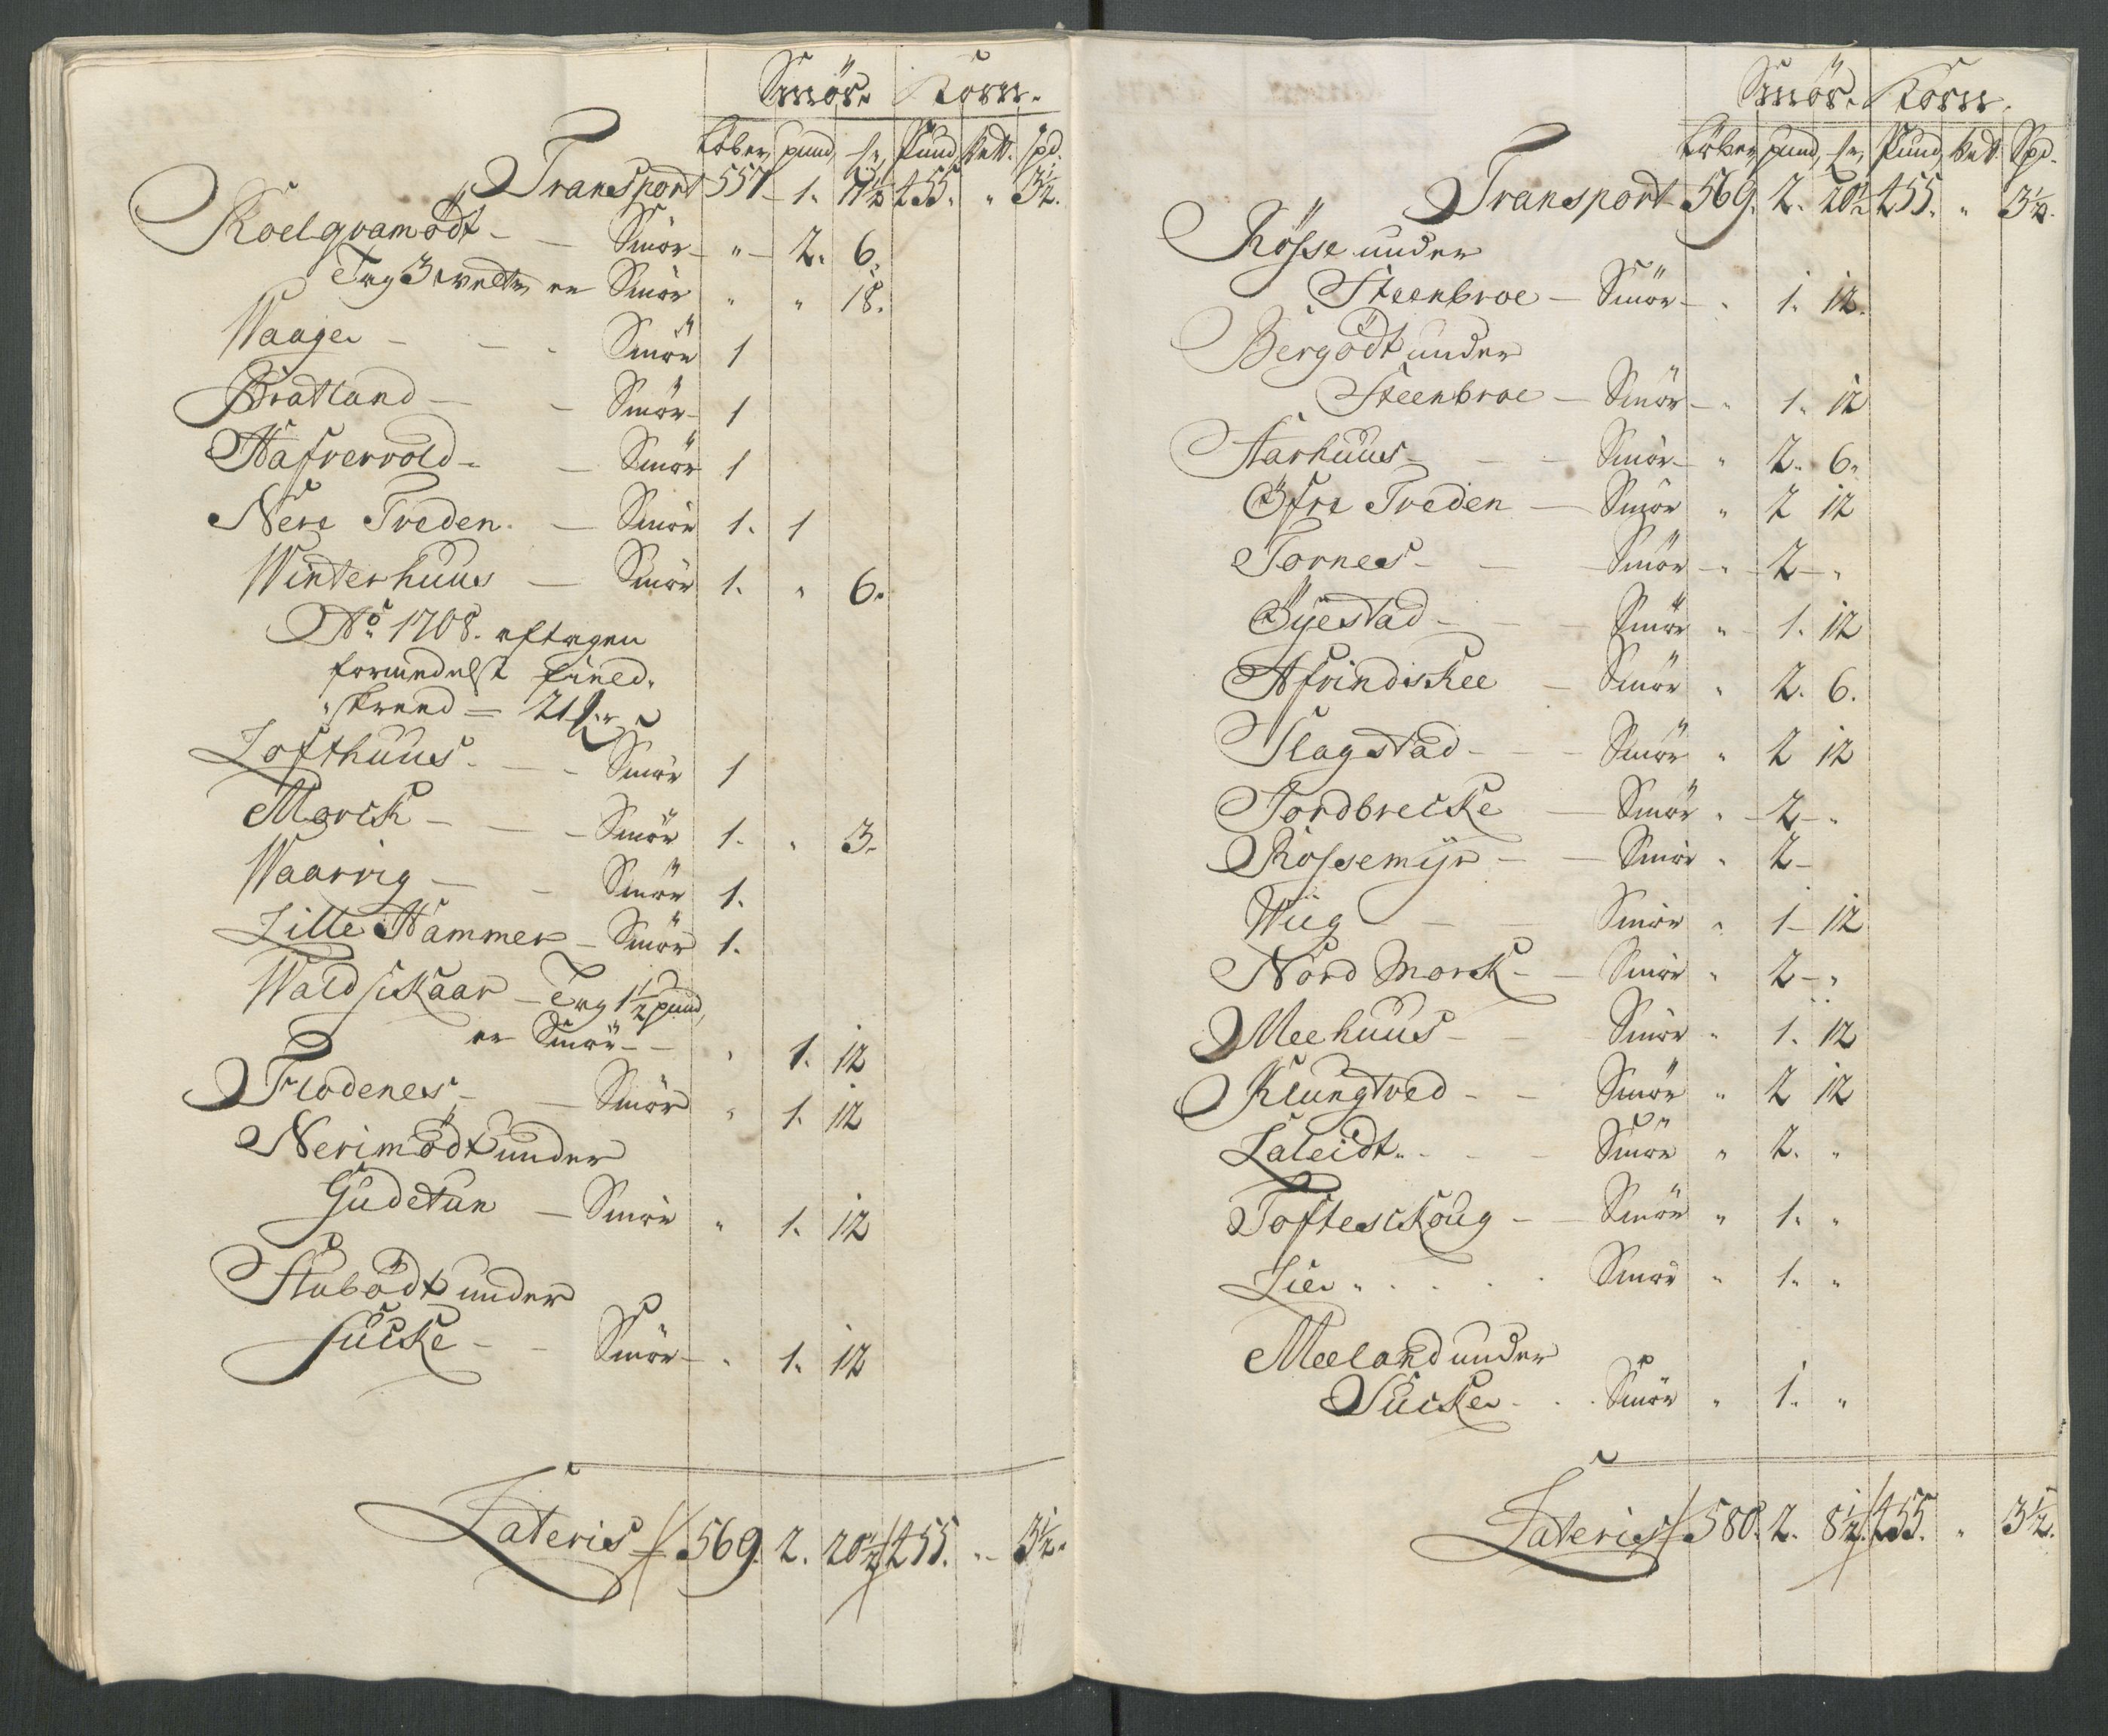 Smör. Korn.
Löber, pund, mr, Pund, Vett. Spd.
Transport 557 - 1. 11½ 455. " 3½.
Koelqvamödt - - Smör - " - 2. 6.
Tag 3 vetter er Smör " " 18.
Waage - - - Smör 1
Bratland - - Smör - 1
Hafrevold - - Smör 1
Nere Tveden. - Smör 1. 1
Winterhuus - Smör 1. " 6.
Ao 1708. aftagen
formedelst field-
skreed = 21 mr
Lofthuus. - - Smör 1
Morck - - - Smör 1. " 3.
Waarvig - - Smör 1.
Lille Hammer - Smör 1.
Waldsckaar - Tag 1½ pund,
er Smör - - " 1. 12
Flodenes, - - Smör " 1. 12
Nerimödt under
Gudetun - Smör " 1. 12
Stubödt under
Sücke - - Smör - " 1. 12
Lateris // 569. 2. 20½ // 455. " - 3½.
Smör. Korn.
Löber, pund, mr, Pund, Vett. Spd.
Transport 569. 2. 20½ 455. " 3½.
Rösse under
Steenbroe - Smör - " 1. 12.
Bergödt under
Steenbroe - Smör - " 1. 12
Aarhuus - - - Smör - " 2. 6.
Öfre Tveden - Smör " 2 12
Tornes - - - Smör - " - 2 - "
Öyestad - - - Smör " - 1. 12
Afvindiskee - Smör " 2. 6.
Slagstad - - - Smör " 2 12
Jordbrecke - Smör " - 2 - "
Rossemyr - - Smör " 2 -
Wiig - - - Smör " 1 - 12
Nord Morck - - Smör " 2 - "
Meehuus - - - Smör " 1. 12
Klungtved - - Smör " 2 12
Laleidt. - - - Smör " 2. "
Toftesckoug - - Smör " 1. "
Lie " . . . . Smör " 1. "
Meeland under
Sücke - . . Smör " 1. "
Lateris // 580. 2. 8½. // 455. " 3½.